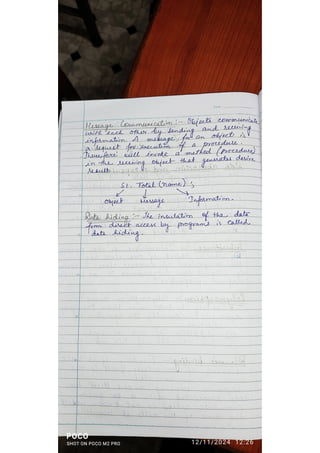 Message Communication :- Objects communicate
with each other by sending and receiving
information. A message for an object is
a request for execution of a procedure.
Therefore will invoke a method (procedure)
in the receiving object that generates desire
result.
S1. Total (name);
Object Message Information.
Data hiding :- The insulation of the data
from direct access by programs is called
data hiding.
POCO
SHOT ON POCO M2 PRO
12/11/2024 12:26